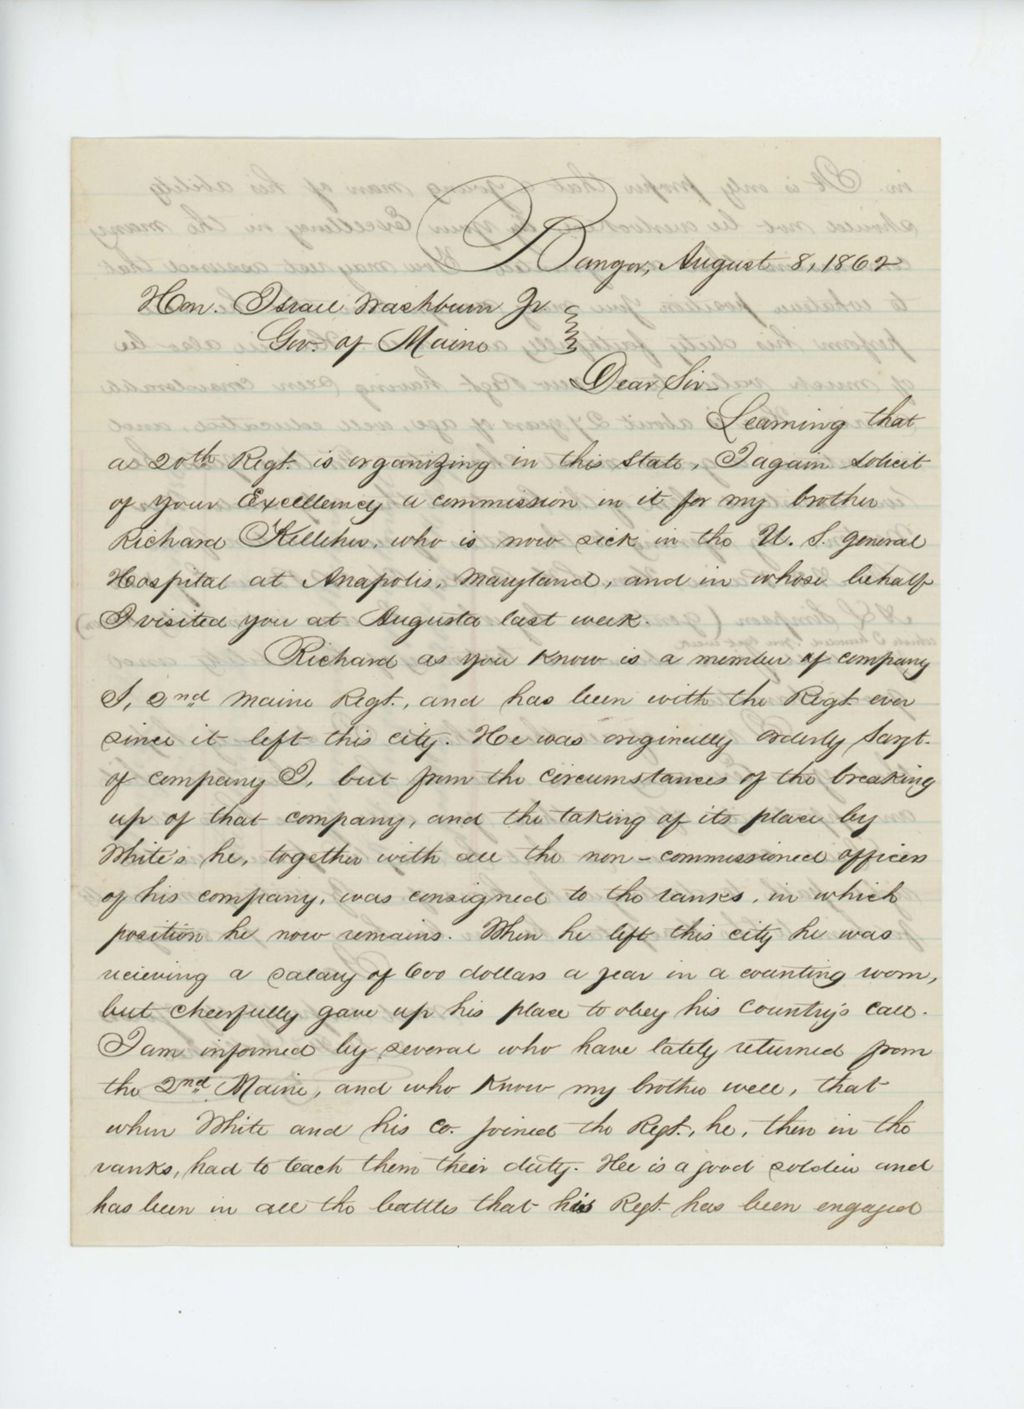 Bangor, August 8, 1862
Hon. Israel Washburn Jr
Gov. of Maine
Dear Sir
Learning that
a 20th Regt. is organizing in this State, I again solicit
of your Excellency a commission in it for my brother
Richard Kelliher, who is now sick in the U. S. general
Hospital at Anapolis, Maryland, and in whose behalf
I visited you at Augusta last week.
Richard as you know is a member of company
I, 2nd Maine Regt., and has been with the Regt. ever
since it left this city. He was originally Orderly Sargt.
of company I, but from the circumstances of the breaking
up of that company, and the taking of its place by
White's he, together with all the non-commissioned officers
of his company, was consigned to the ranks, in which
position he now remains. When he left this city he was
recieving a salary of 600 dollars a year in a counting room,
but cheerfully gave up his place to obey his Country's call.
I am informed by several who have lately returned from
the 2nd Maine, and who know my brother well, that
when White and his Co. joined the Regt., he, then in the
ranks, had to teach them their duty. Hee is a good soldier and
has been in all the battles that his Regt. has been engaged